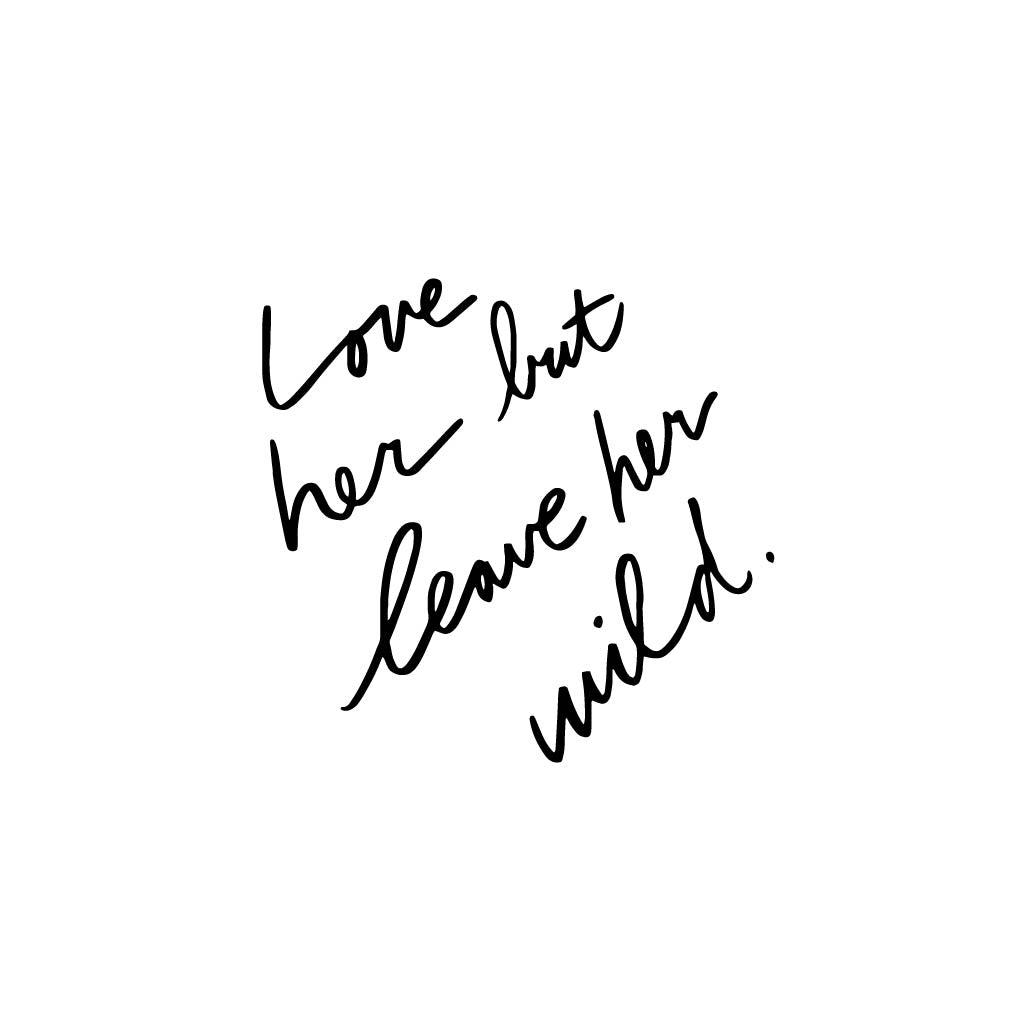 Love but
her
leave her
wild.